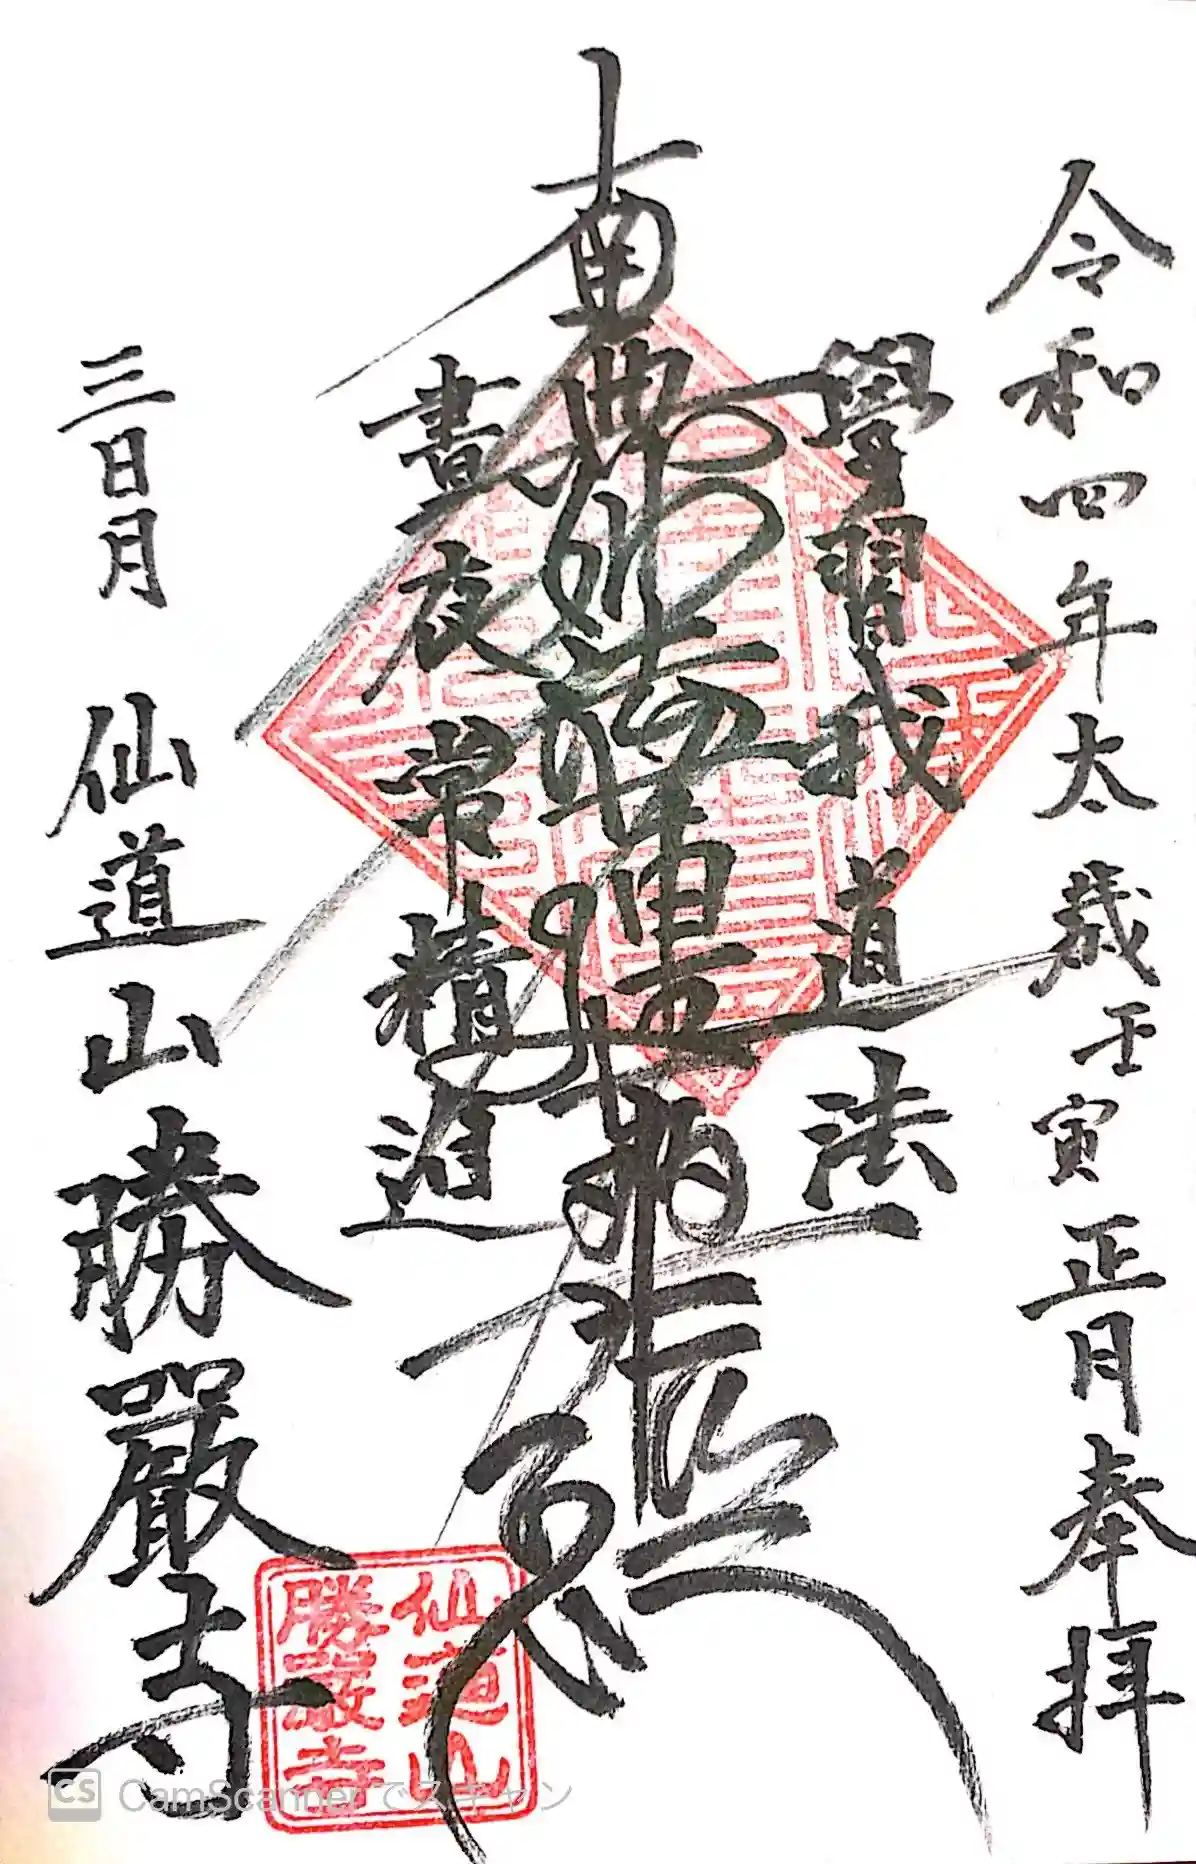 令和四年太歳壬寅正月奉拝
學習我道法
南無妙法蓮華經
晝夜常精進
三日月 仙道山勝嚴寺
仙道山
勝嚴寺
CS CamScannerでスキャン